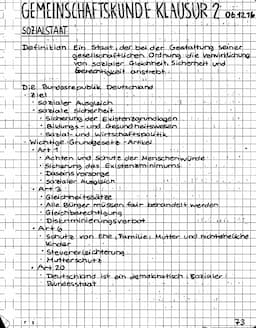 GEMEINSCHAFTSKUNDE KLAUSUR 2 06.12.16
SOZIALSTAAT
Definition: Ein Staat, der bei der Gestaltung seiner
gesellschaftlichen Ordnung die Verwirklichung
von sozialer Gleichheit, Sicherheit und
Gerechtigkeit anstrebt.
Die Bundesrepublik Deutschland
· Ziel
· sozialer Ausgleich
· soziale Sicherheit
· Sicherung der Existenzgrundlagen
· Bildungs- und Gesundheitswesen
· Sozial- und Wirtschaftspolitik
· Wichtige Grundgesetz-Artikel
· Art 1
· Achten und Schutz der Menschenwürde
· Sicherung des Existenzminimums
· Daseinsvorsorge
· sozialer Ausgleich
· Art 3
· Gleichheitssätze
· Alle Bürger müssen fair behandelt werden
· Gleichberechtigung
· Diskriminierungsverbot
· Art 6
· Schutz von Ehe, Familie, Mutter und nichteheliche
Kinder
· Steuererleichterung
· Mutterschutz
· Art 20
· Deutschland ist ein demokratisch, sozialer
Bundesstaat
73